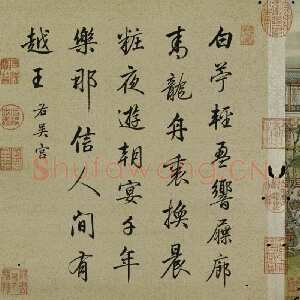 白苧輕盈響屧廊
青龍舟裏換晨
粧夜遊朝宴千年
樂那信人間有
越王 右吳宮
Shufawang.CN